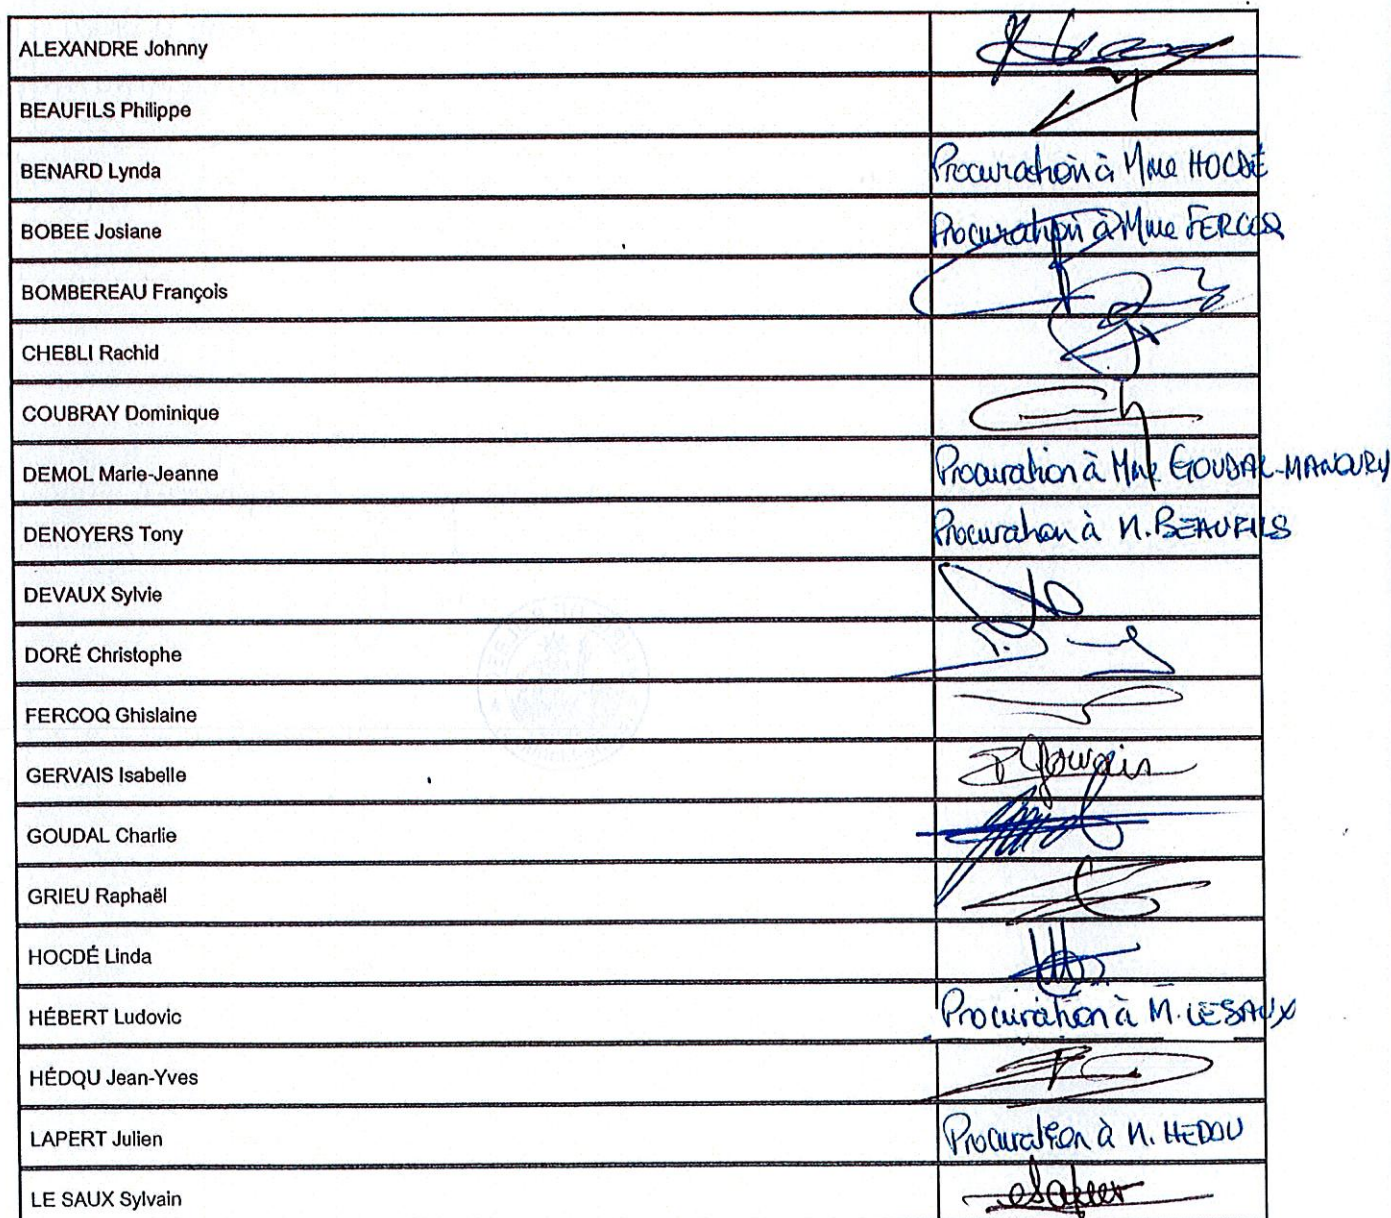 ALEXANDRE Johnny
BEAUFILS Philippe
BENARD Lynda Procuration à Mme HOCDÉ
BOBEE Josiane Procuration à Mme FERCOQ
BOMBEREAU François
CHEBLI Rachid
COUBRAY Dominique
DEMOL Marie-Jeanne Procuration à Mme GOUDAL-MANOURY
DENOYERS Tony Procuration à M. BEAUFILS
DEVAUX Sylvie
DORÉ Christophe
FERCOQ Ghislaine
GERVAIS Isabelle
GOUDAL Charlie
GRIEU Raphaël
HOCDÉ Linda
HÉBERT Ludovic Procuration à M. LESAUX
HÉDQU Jean-Yves
LAPERT Julien Procuration à M. HEDOU
LE SAUX Sylvain